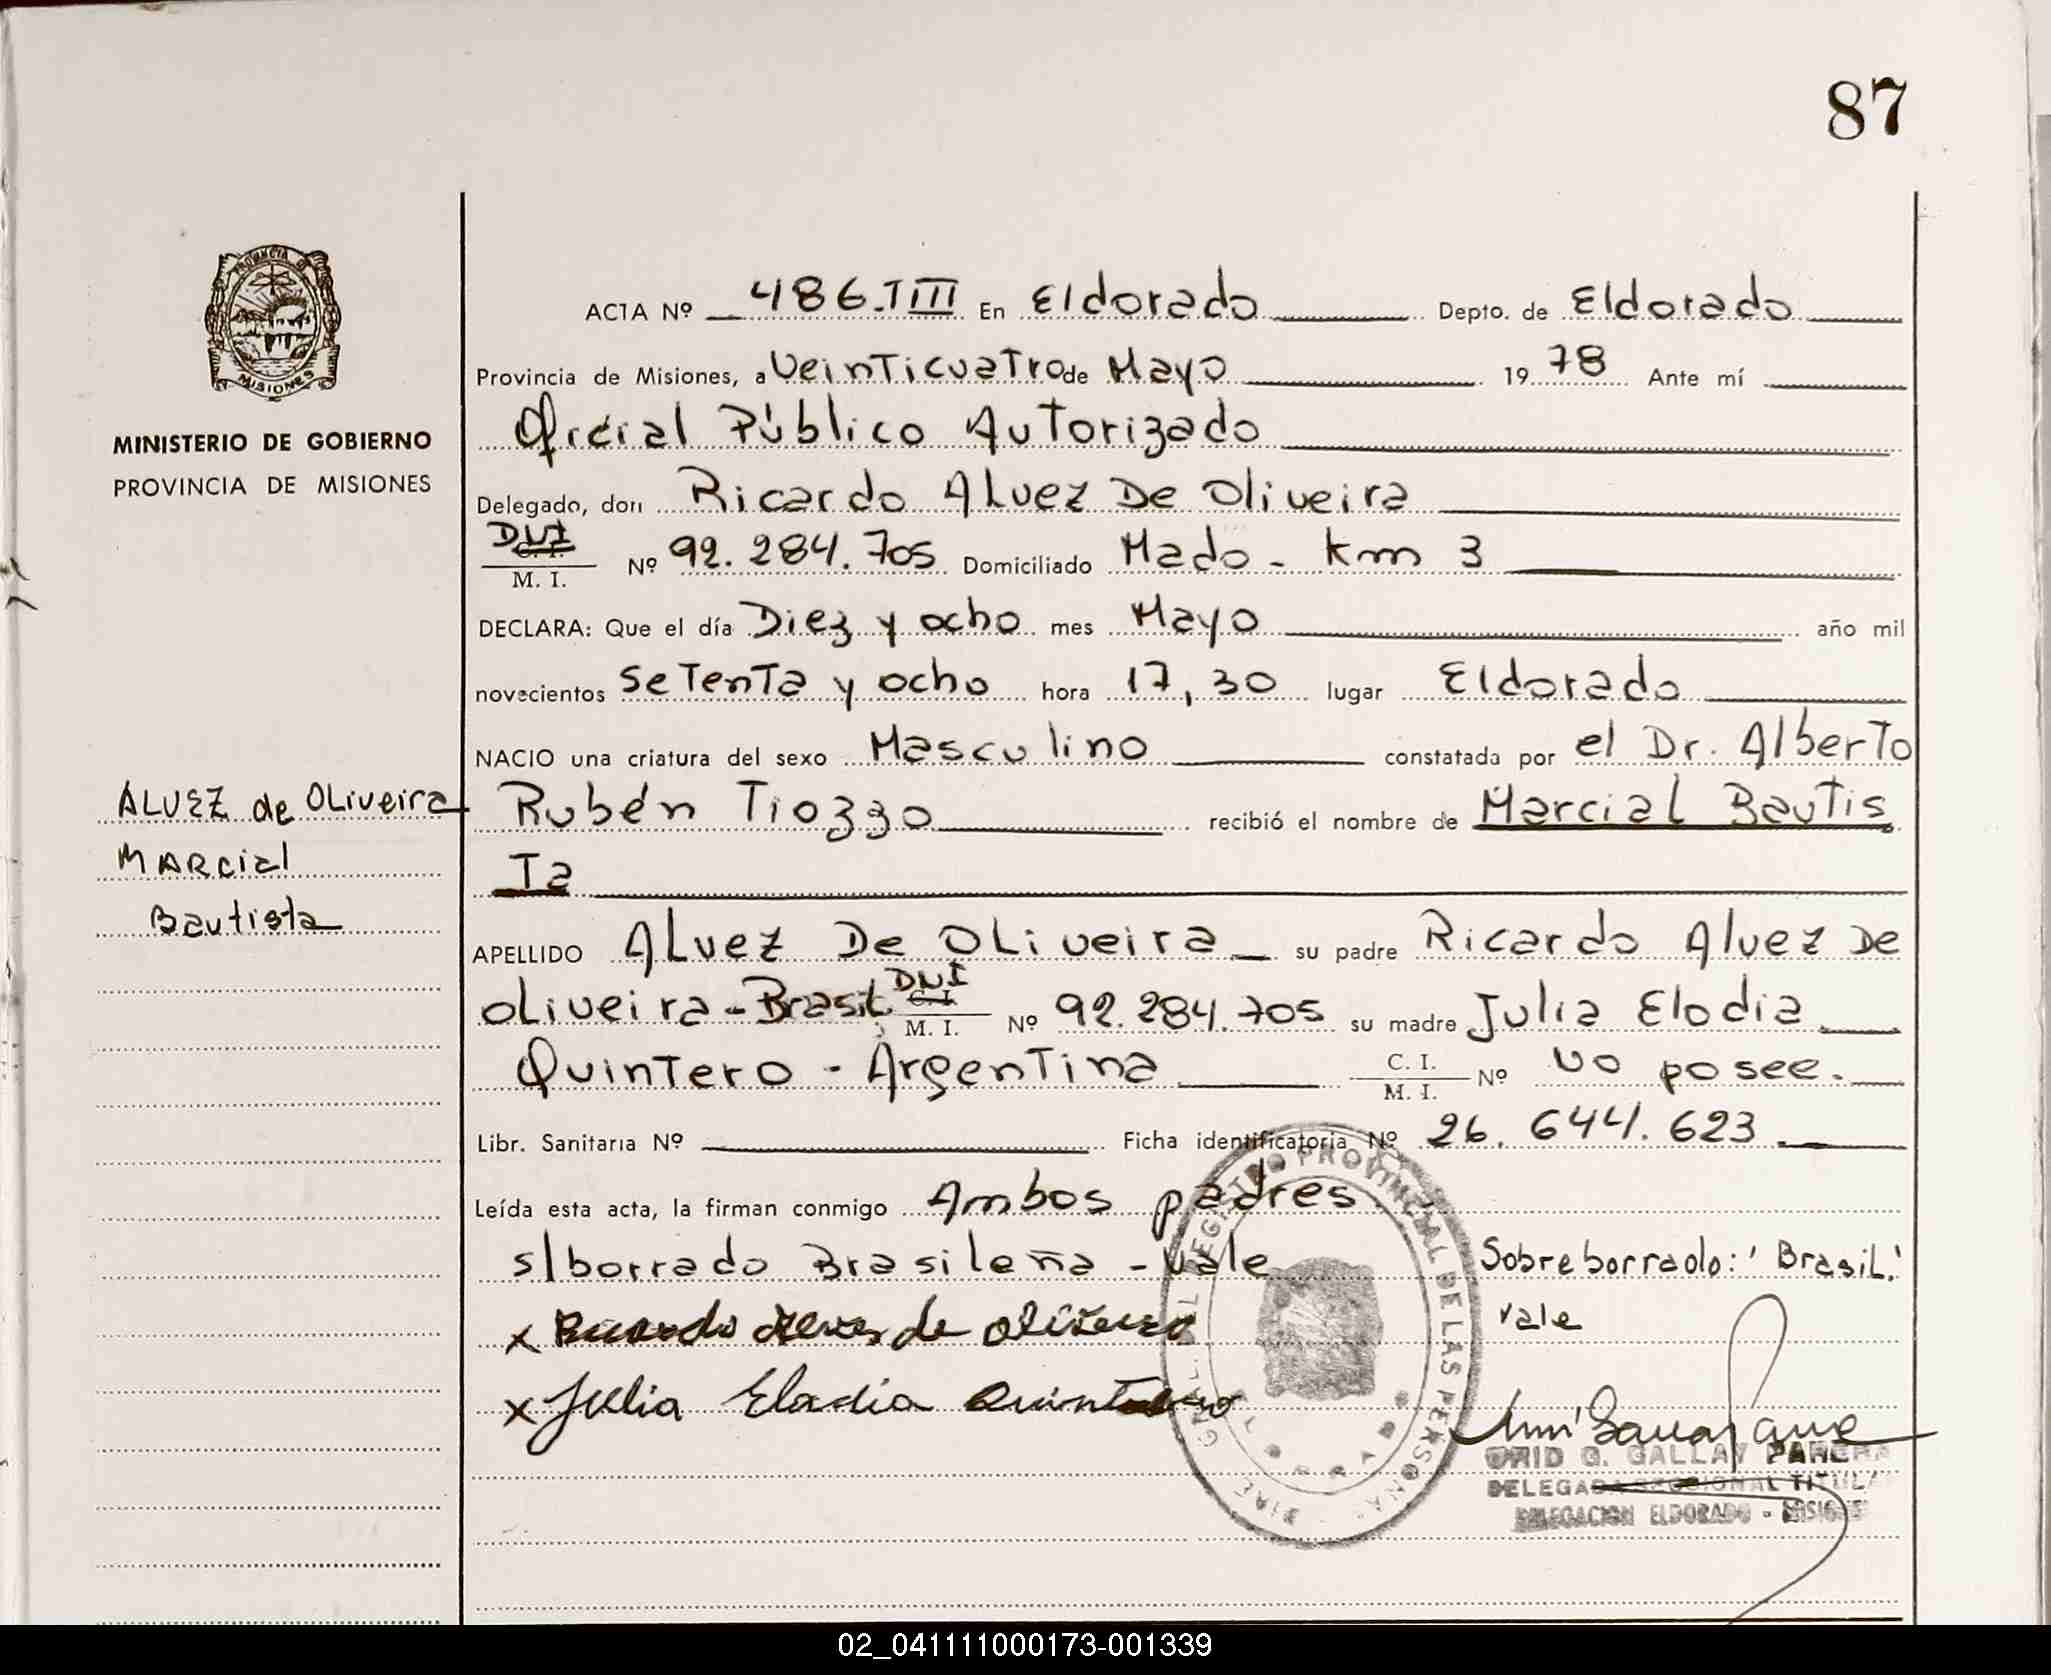 87
PROVINCIA DE
MISIONES
MINISTERIO DE GOBIERNO
PROVINCIA DE MISIONES
ALVEZ de OLiveira
MARcial
Bautista
ACTA Nº 486.TIII En Eldorado Depto. de Eldorado
Provincia de Misiones, a Veinticuatro de Mayo 1978 Ante mí
Oficial Público Autorizado
Delegado, don Ricardo Alvez De Oliveira
DNI C. I. M. I. Nº 92.284.705 Domiciliado Mado - Km 3
DECLARA: Que el día Diez y ocho mes Mayo año mil
novecientos setenta y ocho hora 17,30 lugar Eldorado
NACIO una criatura del sexo Masculino constatada por el Dr. Alberto
Rubén Tiozzo recibió el nombre de Marcial Bautis
Ta
APELLIDO Alvez De Oliveira su padre Ricardo Alvez De
oliveira - Brasil DNI C. I. M. I. Nº 92.284.705 su madre Julia Elodia
Quintero - Argentina C. I. M. I. Nº No posee.
Libr. Sanitaria Nº Ficha identificatoria Nº 26.644.623
Leída esta acta, la firman conmigo Ambos padres.
s/borrado Brasileña - Vale Sobreborrado: 'Brasil.'
vale
x Ricardo de oliveira
x Julia Eladia Quintero
REGISTRO PROVINCIAL DE LAS PERSONAS
ELDORADO
G. GALLAY PARERA
DELEGADA SECCIONAL TITULAR
DELEGACION ELDORADO - MISIONES
02_041111000173-001339